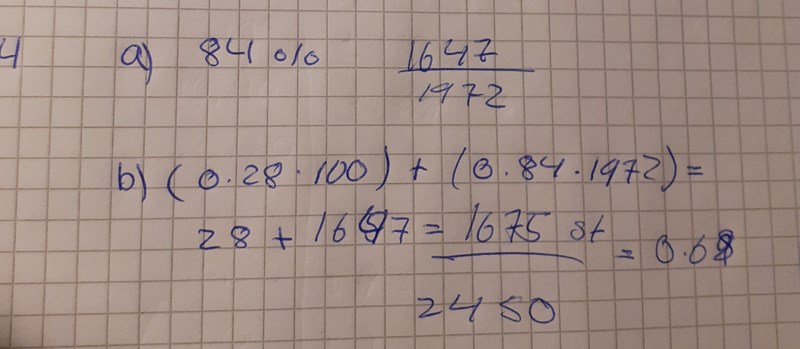 4 a) 84 % 1647
1972
b) (0.28.100) + (0.84.1972) =
28 + 1647 = 1675 st = 0.68
2450